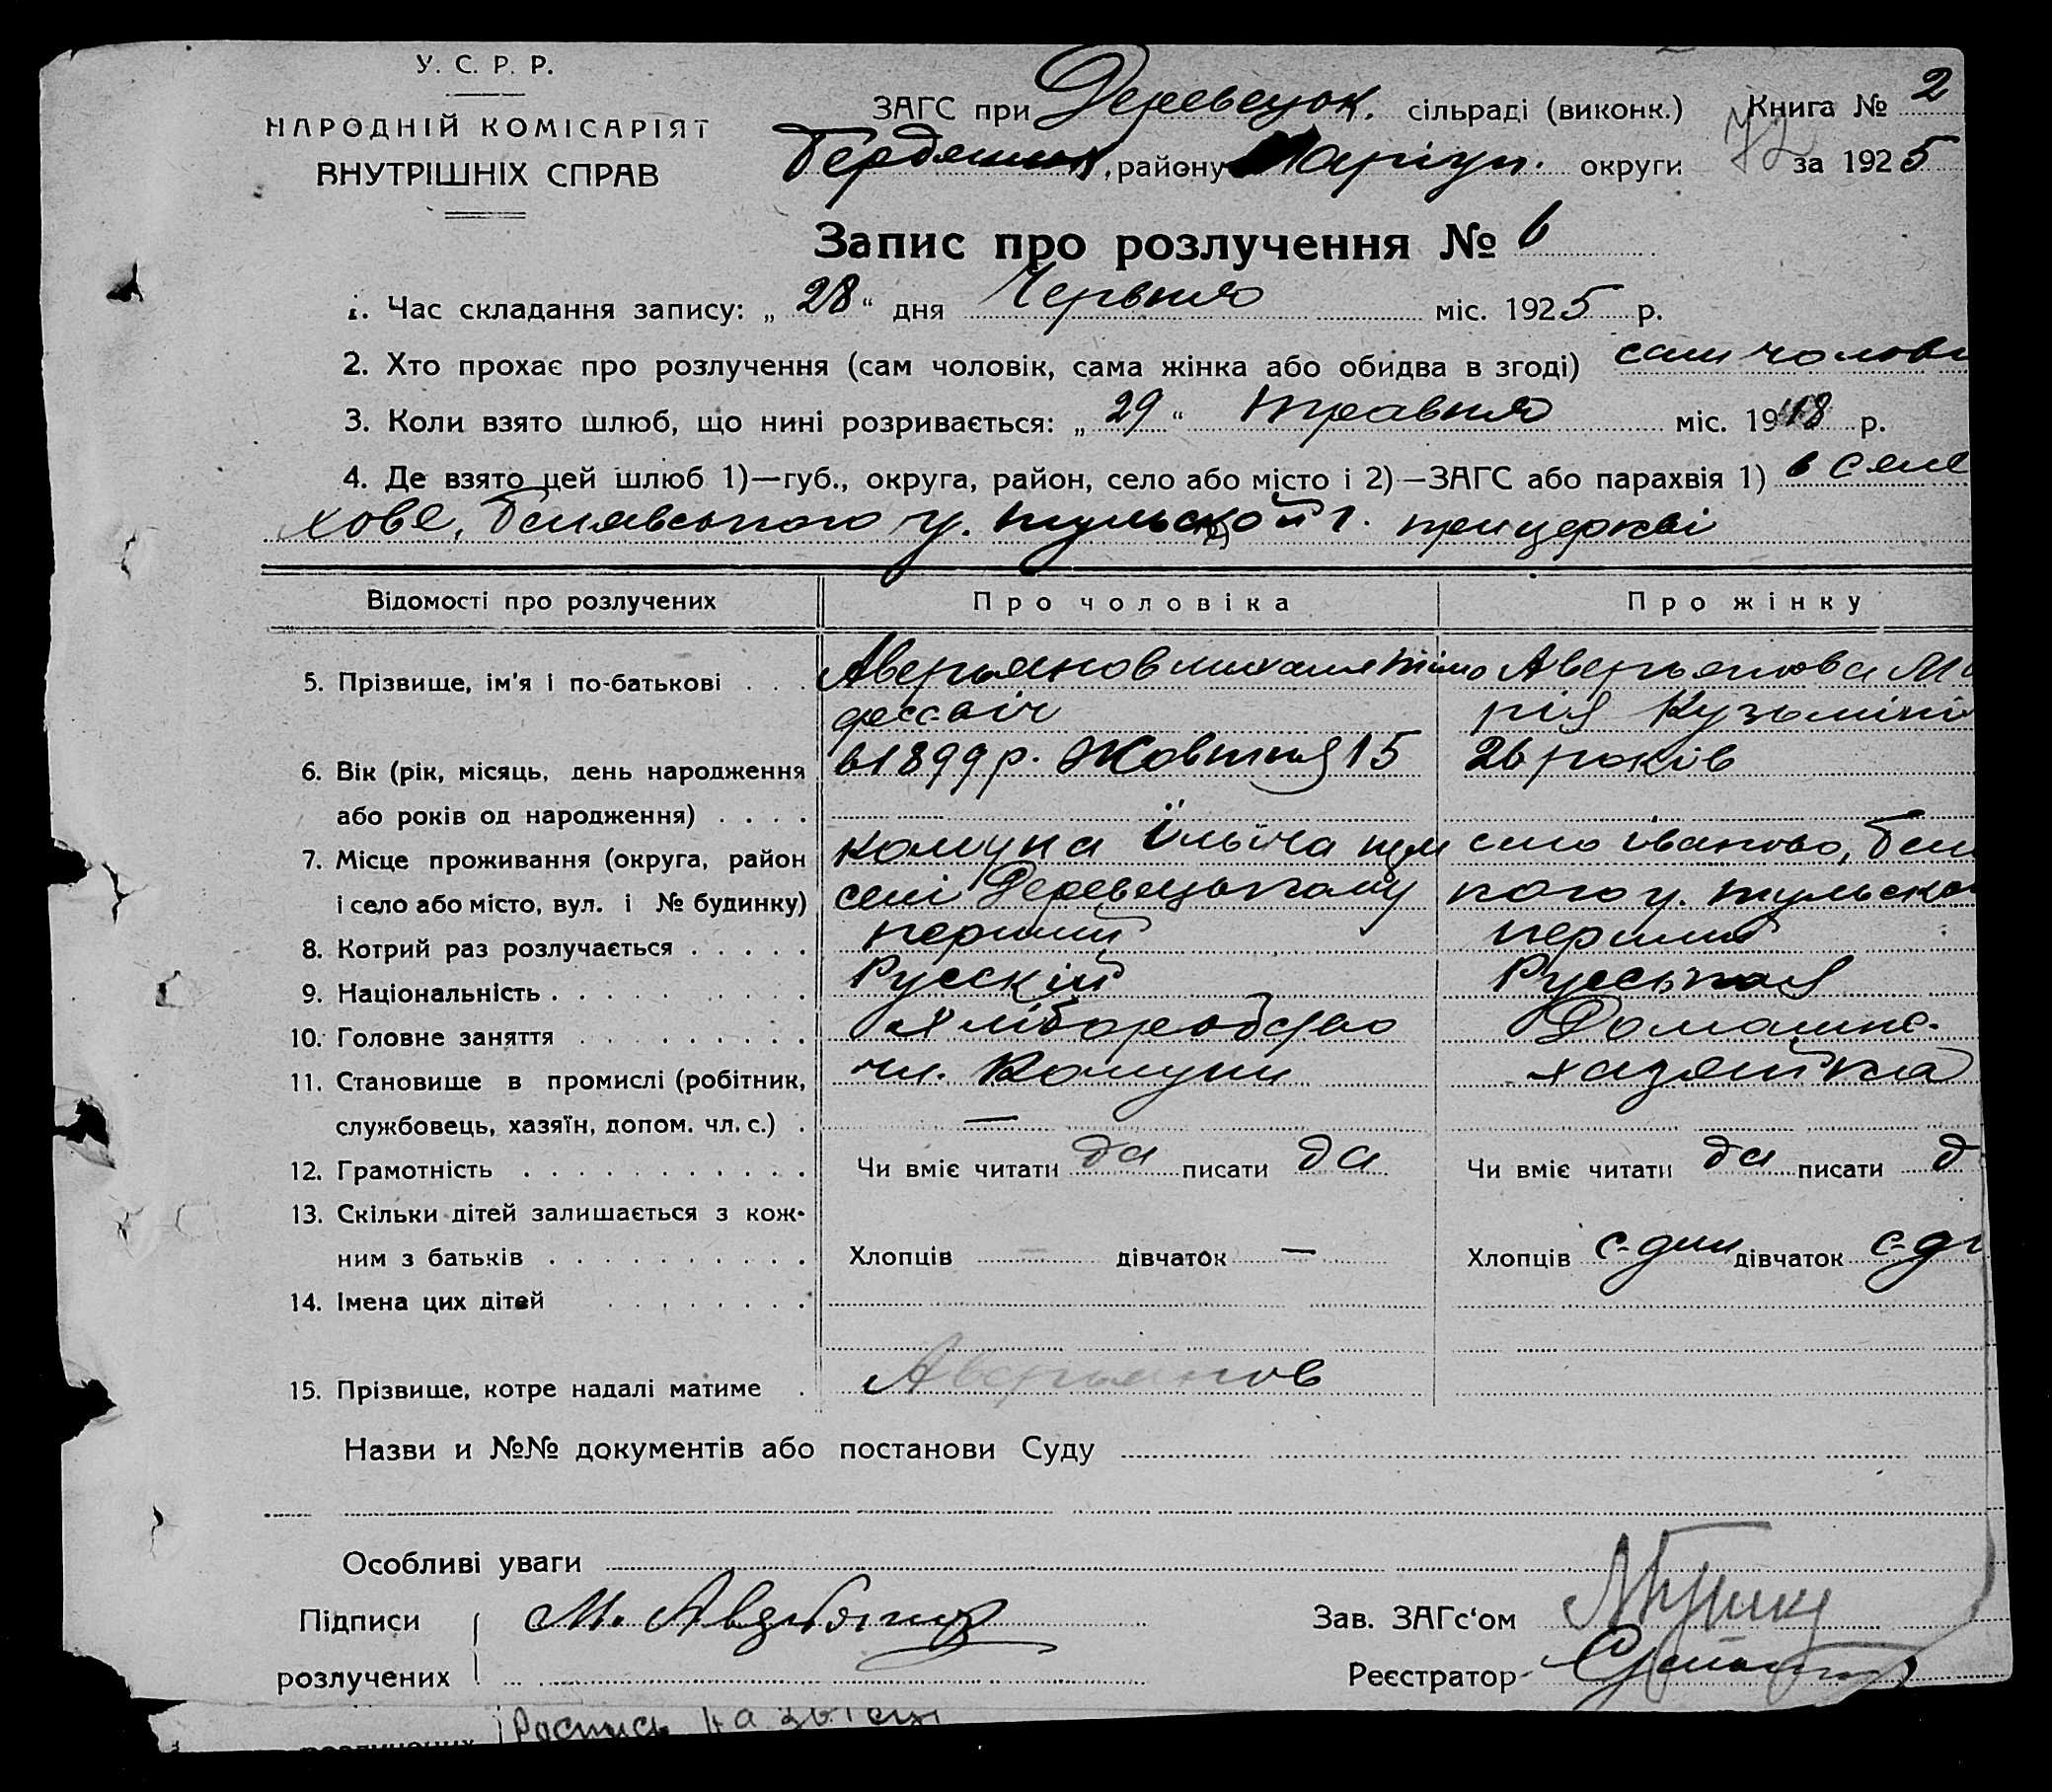 У. С. Р. Р.
НАРОДНІЙ КОМІСАРІЯТ
ВНУТРІШНІХ СПРАВ
ЗАГС при Деревецьк. сільраді (виконк.) Книга № 2
району Маріуп. округи 72 за 1925
Запис про розлучення № 6
1. Час складання запису: „ 28 “ дня Червня міс. 1925 р.
2. Хто прохає про розлучення (сам чоловік, сама жінка або обидва в згоді) сам чолові
3. Коли взято шлюб, що нині розривається: „ 29 “ травня міс. 1918 р.
4. Де взято цей шлюб 1)—губ., округа, район, село або місто і 2)—ЗАГС або парахвія 1) в селе
у. тульской г. при церкві
Відомості про розлучених Про чоловіка Про жінку
5. Прізвище, ім'я і по-батькові . . . Аверьянов Михаил Тимо Аверьянова Ма
рія Кузьміні
6. Вік (рік, місяць, день народження в 1899 р. Жовтня 15 26 років
або років од народження) . . . .
7. Місце проживання (округа, район комуна Ільїча при село іваново, Бел
і село або місто, вул. і № будинку) селі Деревецькому кого у. тульско
8. Котрий раз розлучається . . . . . перший перший
9. Національність . . . . . . . . . . Русскій Руськая
10. Головне заняття . . . . . . . . . Хліборобство Домашне.
11. Становище в промислі (робітник, чл. Комуни хазяйка
службовець, хазяїн, допом. чл. с.) . —
12. Грамотність . . . . . . . . . . . Чи вміє читати да писати да Чи вміє читати да писати д
13. Скільки дітей залишається з кож-
ним з батьків . . . . . . . . . . Хлопців — дівчаток — Хлопців один дівчаток
14. Імена цих дітей . . . . . . . .
15. Прізвище, котре надалі матиме . Аверьянов
Назви и №№ документів або постанови Суду
Особливі уваги
Підписи
розлучених
Зав. ЗАГс'ом
Реєстратор
Роспись на
розлучених